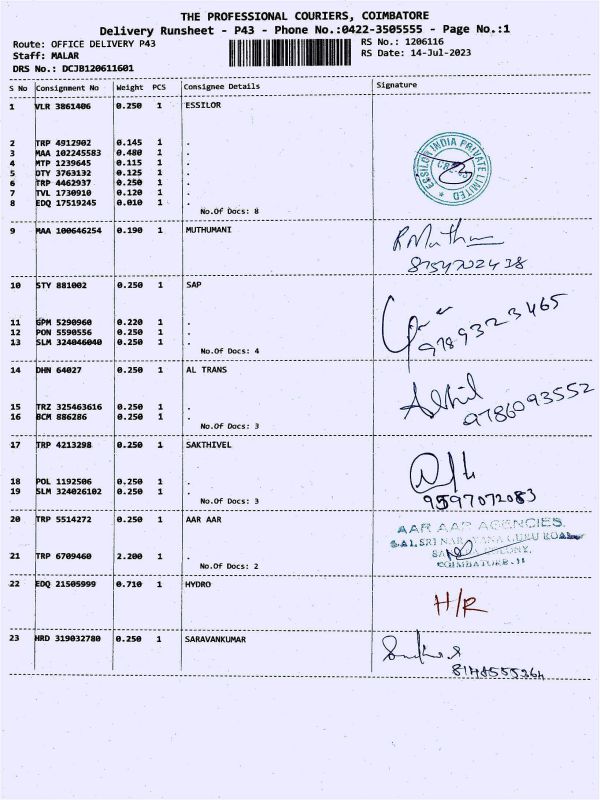 THE PROFESSIONAL COURIERS, COIMBATORE
Delivery Runsheet - P43 - Phone No.:0422-3505555 - Page No.:1
Route: OFFICE DELIVERY P43
RS No.: 1206116
Staff: MALAR
RS Date: 14-Jul-2023
DRS No.: DCJB120611601
S No Consignment No Weight PCS Consignee Details Signature
1 VLR 3861406 0.250 1 ESSILOR
2 TRP 4912902 0.145 1 .
3 MAA 102245583 0.480 1 .
4 MTP 1239645 0.115 1 .
5 OTY 3763132 0.125 1 .
6 TRP 4462937 0.250 1 .
7 TVL 1730910 0.120 1 .
8 EDQ 17519245 0.010 1 .
No.Of Docs: 8
ESSILOR INDIA PRIVATE LIMITED
9 MAA 100646254 0.190 1 MUTHUMANI
10 STY 881002 0.250 1 SAP
9789323465
11 GPM 5290960 0.220 1 .
12 PON 5590556 0.250 1 .
13 SLM 324046040 0.250 1 .
No.Of Docs: 4
14 DHN 64027 0.250 1 AL TRANS
9786093552
15 TRZ 325463616 0.250 1 .
16 BCM 886286 0.250 1 .
No.Of Docs: 3
17 TRP 4213298 0.250 1 SAKTHIVEL
18 POL 1192506 0.250 1 .
19 SLM 324026102 0.250 1 .
No.Of Docs: 3
9597072083
20 TRP 5514272 0.250 1 AAR AAR
AAR AAR AGENCIES,
COIMBATORE-11
21 TRP 6709460 2.200 1 .
No.Of Docs: 2
22 EDQ 21505999 0.710 1 HYDRO
H/R
23 HRD 319032780 0.250 1 SARAVANKUMAR